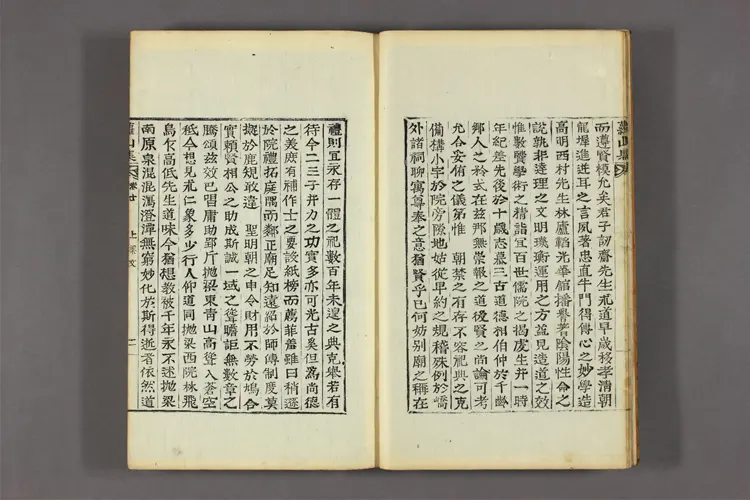 而遵賢模允矣君子訒齋先生克追早歲移孝清朝
龍墀進逆耳之言夙著忠直牛門得傳心之妙學造
高明西村先生林廬韜光華館播譽著陰陽性命之
說孰非達理之文明璣衡運用之方益見造道之效
惟數賢學術之精詣宜百世儒院之揭虔生并一時
年紀差先後於十歲志慕三古道德相伯仲於千齡
鄉人之矜式在玆那無崇報之道後賢之尙論可考
允合妥侑之儀第惟 朝禁之有存不容祀典之克
備構小宇於院旁隙地姑從早約之規稽殊例於嶠
外諸祠聊寓尊奉之意猶賢乎已何妨別廟之稱在
禮則宜永存一體之祀數百年未遑之典克擧若有
待今二三子幷力之功實多亦可光古奚但爲尙德
之美庶有補作士之要設紙榜而薦菲羞雖曰稍遜
於院禮拓庭隅而鄰正廟足知遠紹於師傳制度莫
擬於鹿規敢違 聖明朝之申令財用不勞於鳩合
實賴賢相公之助成斯誠一域之聳瞻詎無數章之
騰頌玆效巴謂庸助郢斤拋梁東靑山高聳入蒼空
秪今想見
仁象多少行人仰道同拋梁西院林飛
鳥乍高低先生道味今猶想敎被千年永不迷拋梁
南原泉混混瀉澄潭無窮妙化於斯得逝者依然道
卷十 上樑文